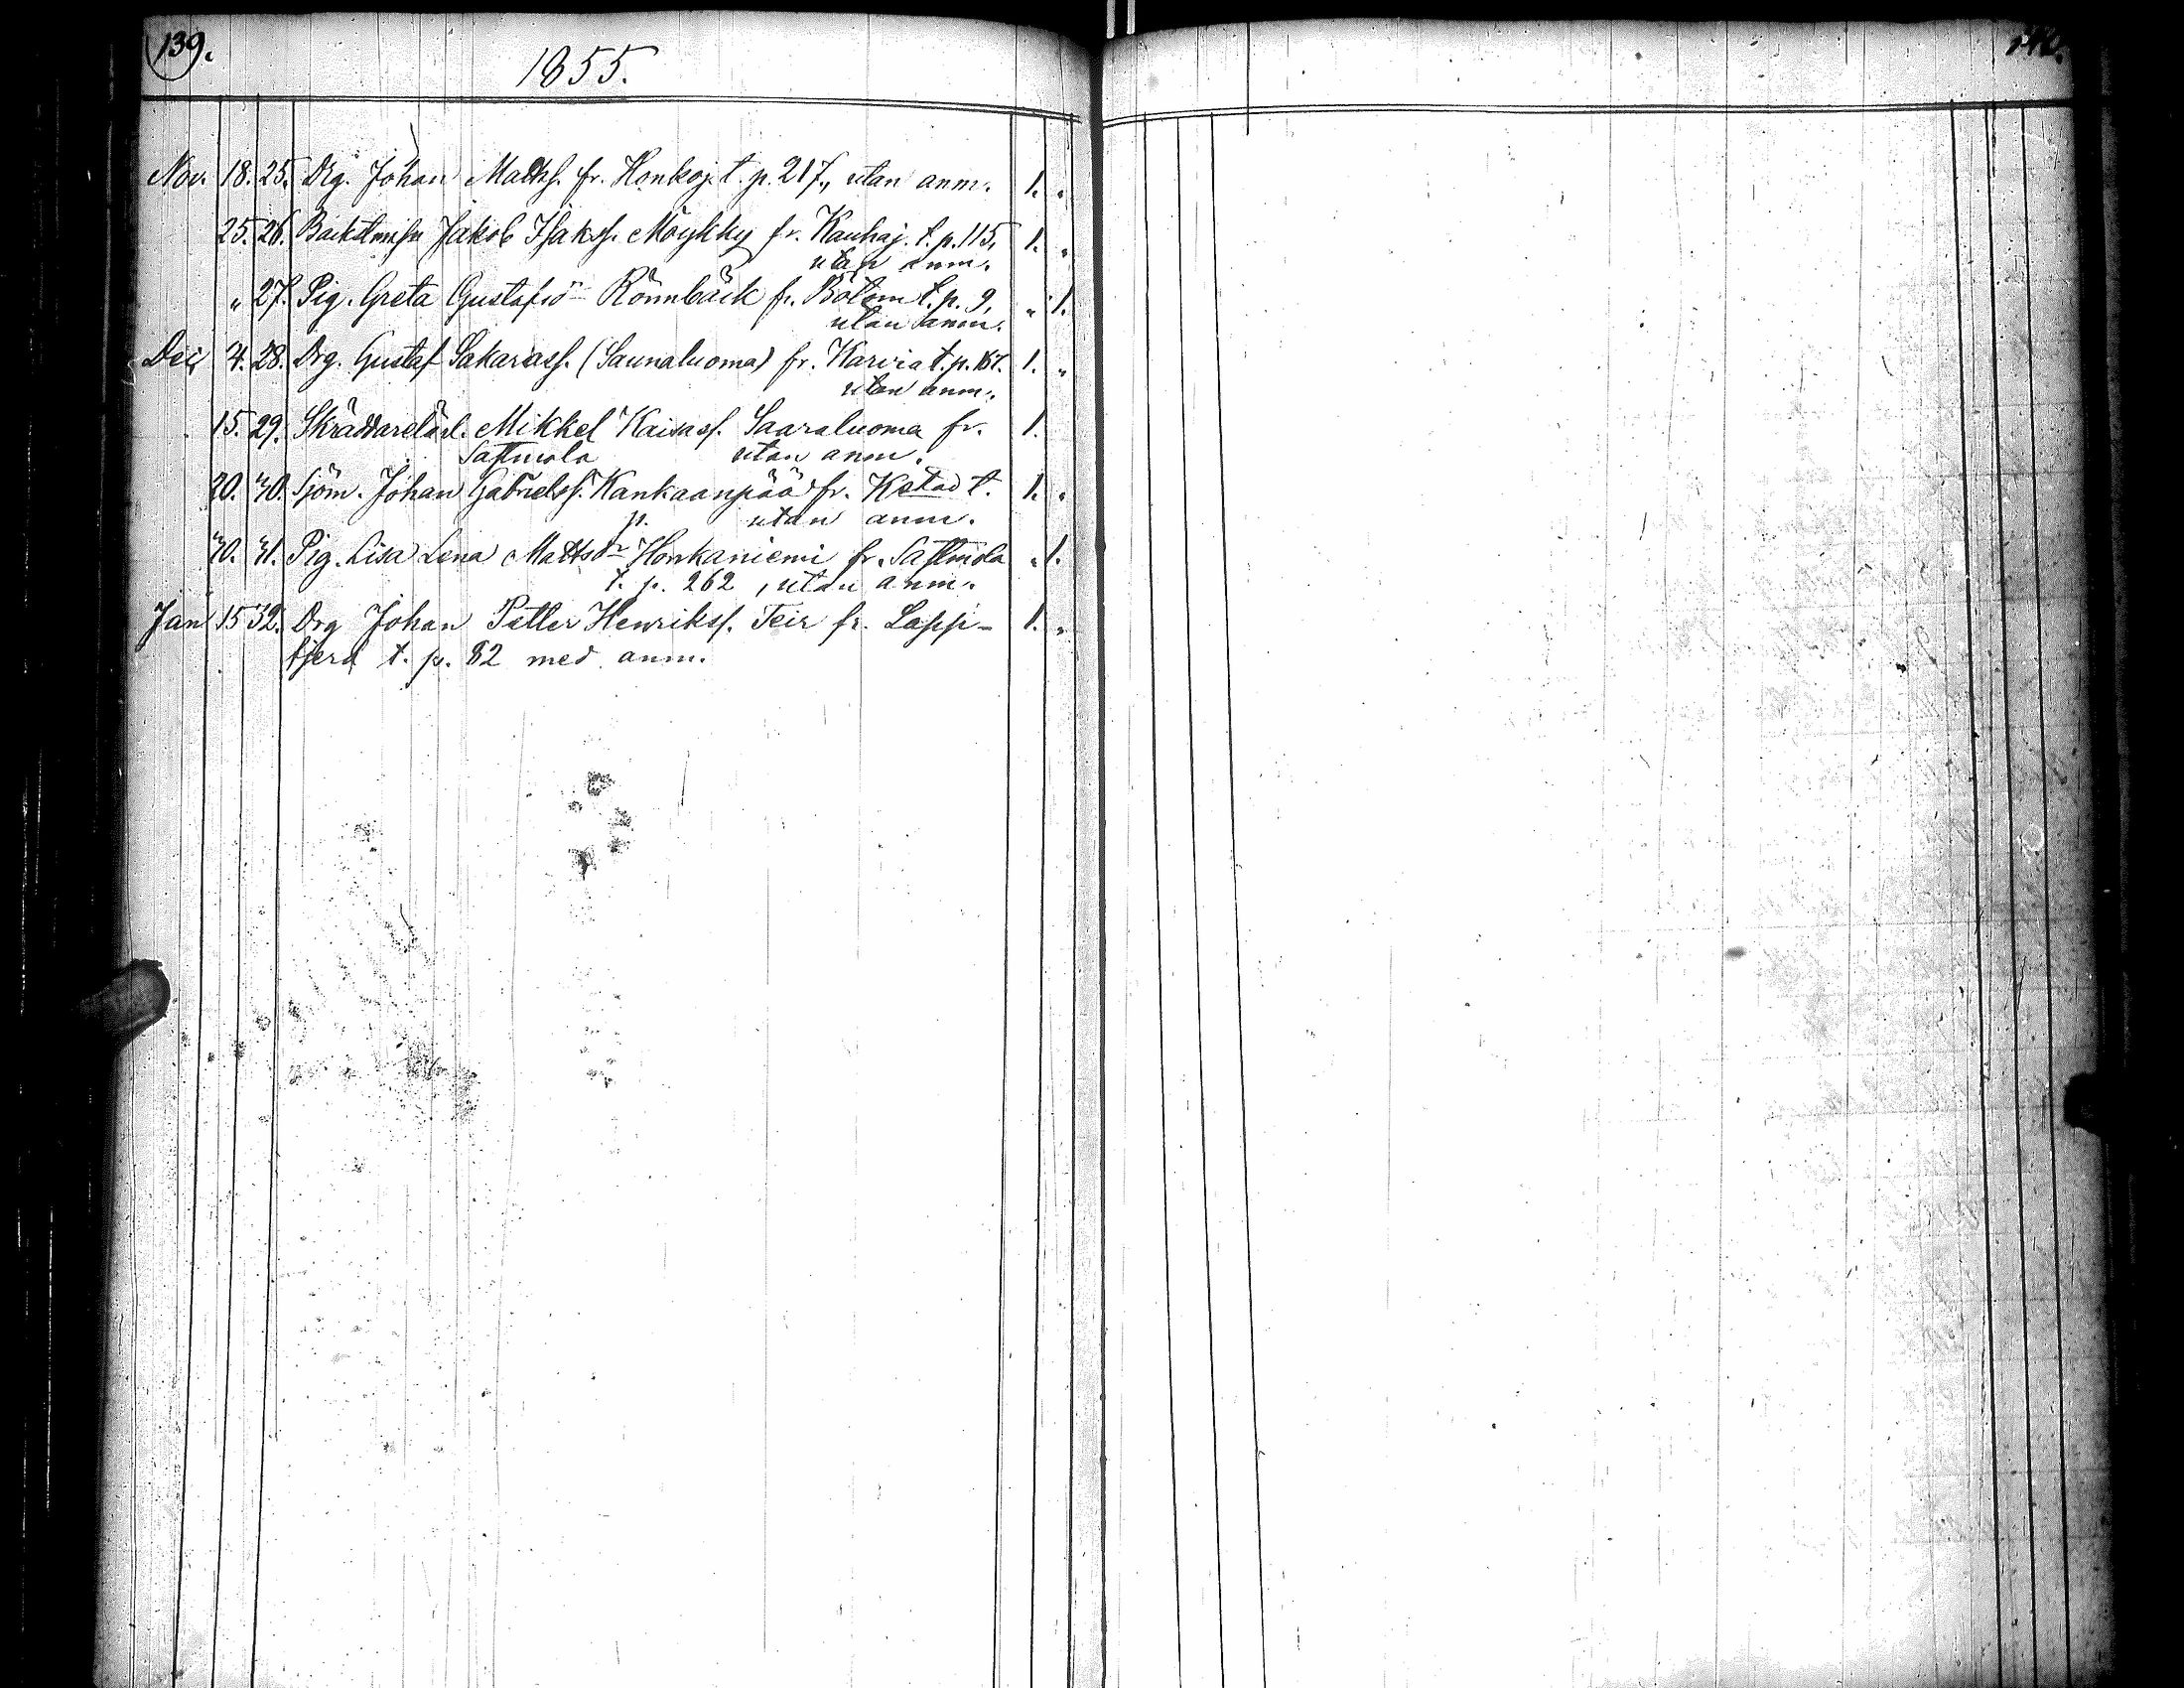 139.
1855.
Nov. 18. 25. Drg. Johan Mattss. fr. Honkoj. t. p. 217, utan anm. 1. "
25. 26. Jakob Isakss. Möykky fr. Kauhaj. t. p. 115, 1. "
utan anm.
" 27. Pig. Greta Gustafsdr Rönnbäck fr. Bötom t. p. 9, " 1.
utan anm.
Dec 4. 28. Drg. Gustaf Sakariass. (Saunaluoma) fr. Karvia t. p. 1. "
utan anm.
15. 29. Skräddarelärl. Mikkel Kaisass. Saaraluoma fr. 1.
Sastmola utan anm.
20. 30. Sjöm. Johan Gabrielss. Kankaanpää fr. Kstad t. 1. "
p. utan anm.
30. 31. Pig. Lisa Lena Mattsdr Honkaniemi fr. Sastmola " 1.
t. p. 262, utan anm.
Jan 15 32. Drg Johan Petter Henrikss. Teir fr. Lapp- 1. "
fjerd t. p. 82 med anm.